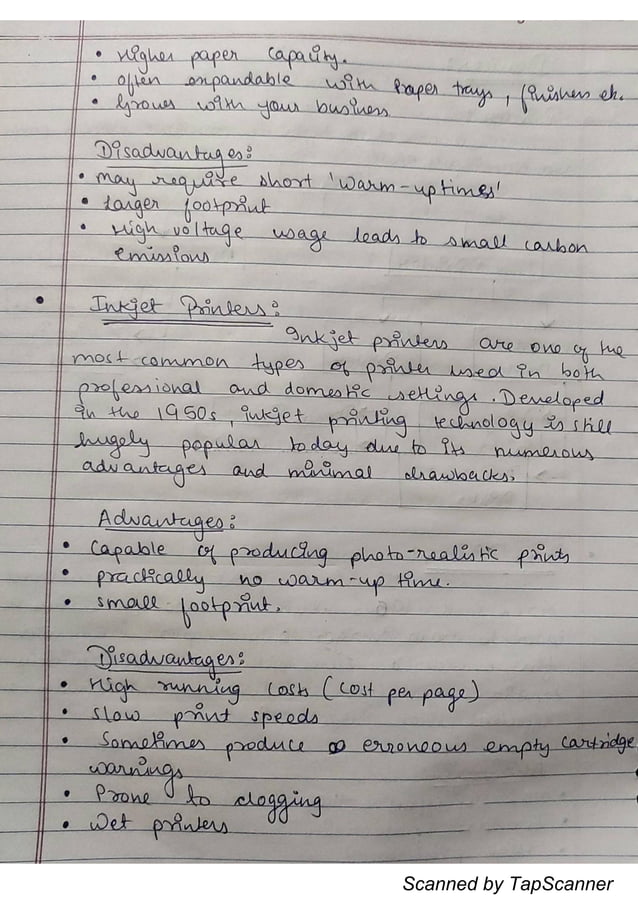 • Higher paper capacity.
• often expandable with Paper trays, finishers etc.
• Grows with your business
Disadvantages:
• may require short 'warm-uptimes'
• Larger footprint
• High voltage usage leads to small carbon
emissions
• Inkjet Printers:
Inkjet printers are one of the
most common types of printer used in both
professional and domestic settings. Developed
in the 1950s, inkjet printing technology is still
hugely popular today due to its numerous
advantages and minimal drawbacks.
Advantages:
• Capable of producing photo-realistic prints
• practically no warm-up time.
• small footprint.
Disadvantages:
• High running costs (cost per page)
• slow print speeds
• Sometimes produce erroneous empty cartridge
warnings
• Prone to clogging
• Wet printers
Scanned by TapScanner